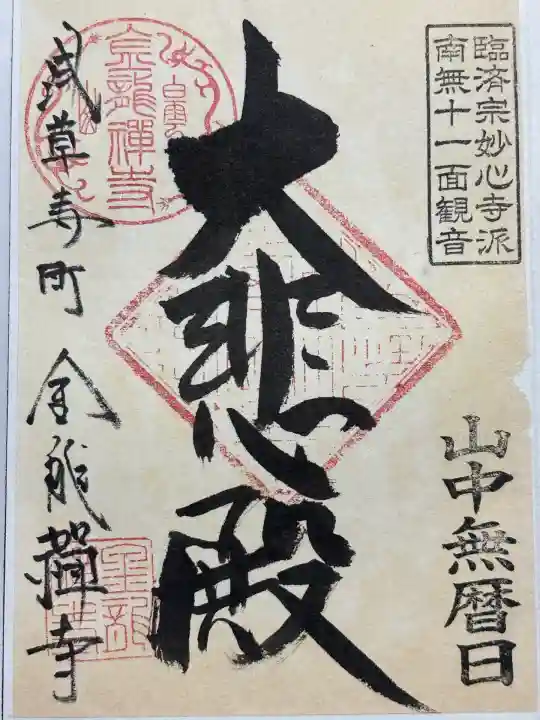 臨済宗妙心寺派
南無十一面観音
山中無暦日
大悲殿
浅草寺町 金龍禅寺
金龍禅寺